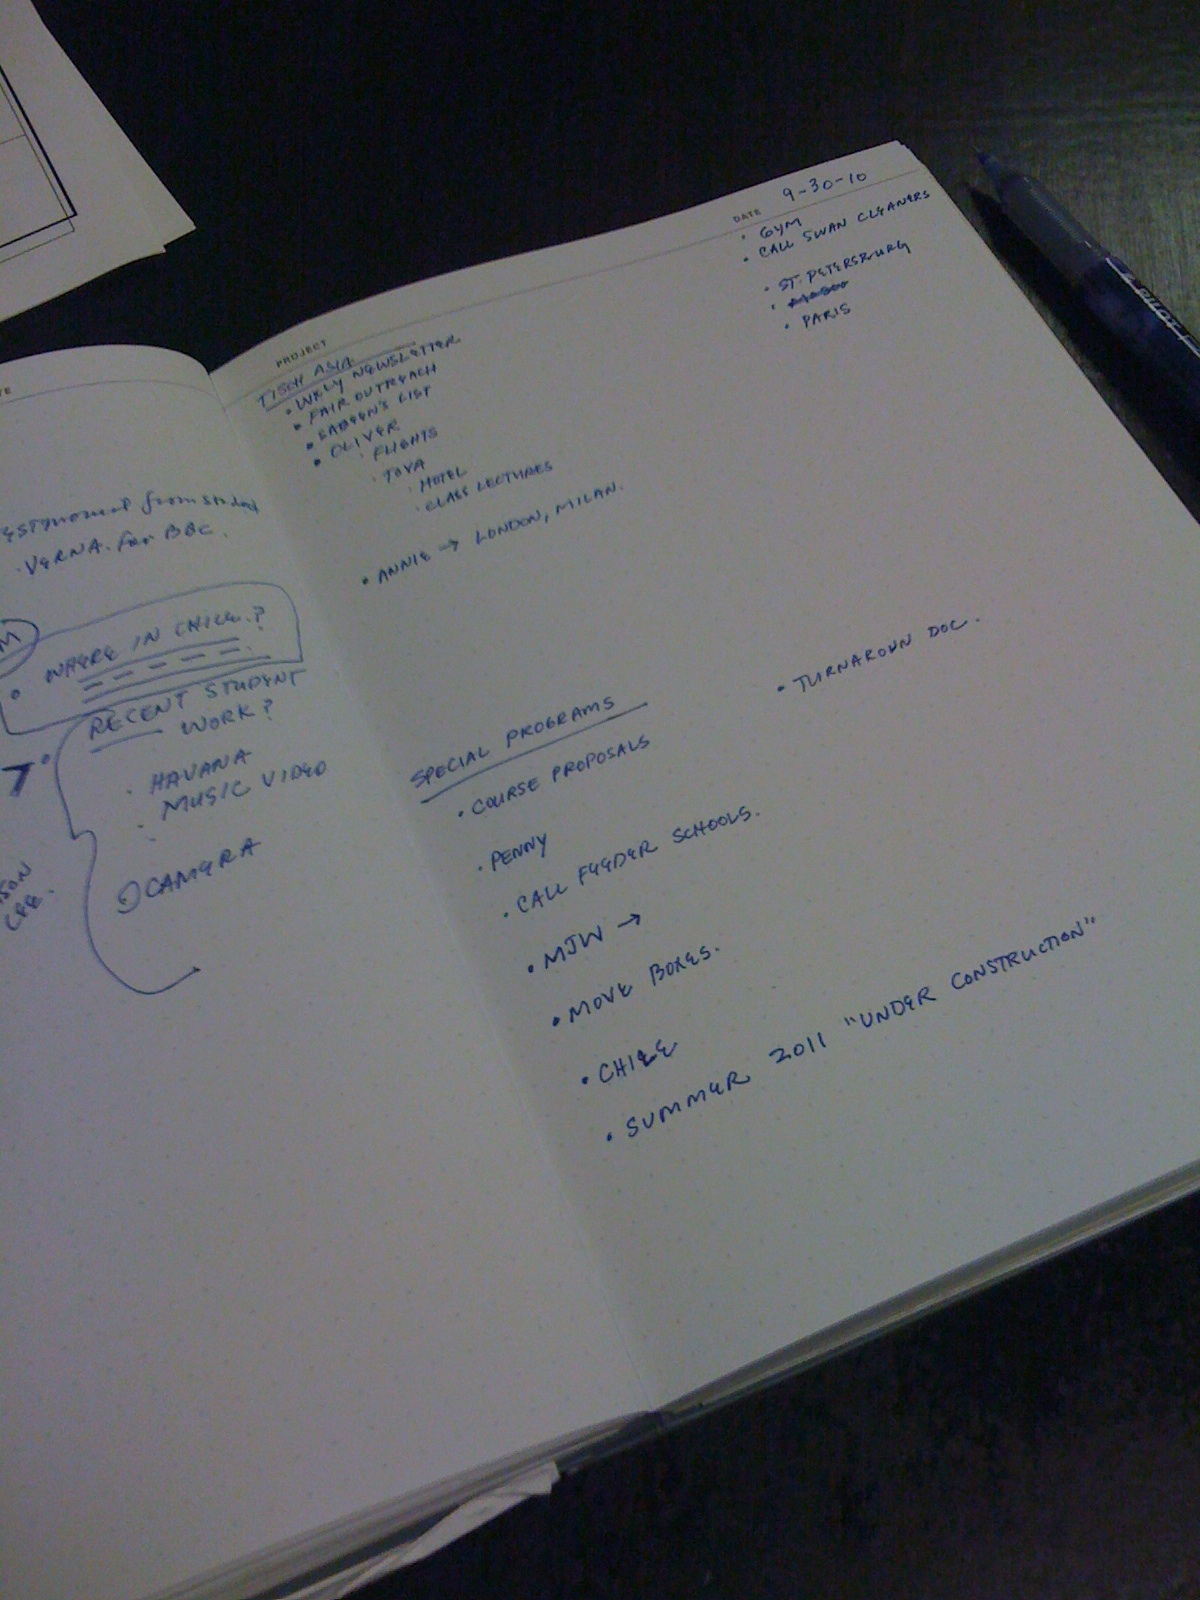 TE
from student
· VERNA. for BBC.
M
• WHERE IN CHILE.?
RECENT STUDENT
WORK?
7°
· HAVANA
· MUSIC VIDEO
CAMERA
SON
LEE.
PROJECT
DATE 9-30-10
· GYM
· CALL SWAN CLEANERS
· ST. PETERSBURG
· PARIS
TISCH ASIA
• WKLY NEWSLETTER
• FAIR OUTREACH
• LIST
• OLIVER
· FLIGHTS
· TOYA
· HOTEL
· CLASS LECTURES
• ANNIE → LONDON, MILAN.
• TURNAROUN DOC.
SPECIAL PROGRAMS
• COURSE PROPOSALS
· PENNY
· CALL FEEDER SCHOOLS.
• MJW →
• MOVE BOXES.
• CHILE
• SUMMER 2011 "UNDER CONSTRUCTION"
PILOT